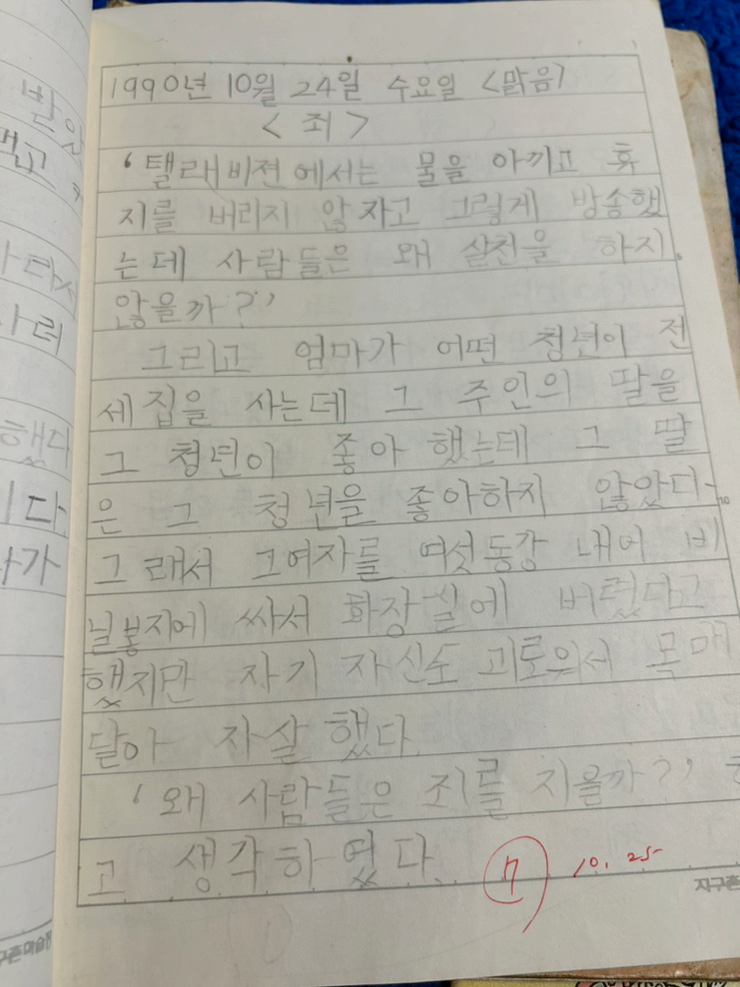 1990년 10월 24일 수요일 <맑음>
<죄>
‘탤래비젼에서는 물을 아끼고 휴
지를 버리지 않자고 그렇게 방송했
는데 사람들은 왜 실천을 하지
않을까?’
그리고 엄마가 어떤 청년이 전
세집을 사는데 그 주인의 딸을
그 청년이 좋아 했는데 그 딸
은 그 청년을 좋아하지 않았다.
그래서 그여자를 여섯동강 내어 비
닐봏지에 싸서 화장실에 버렸다고
했지만 자기 자신도 괴로워서 목매
달아 자살 했다.
‘왜 사람들은 죄를 지을까?’ 하
고 생각하였다.
10. 25